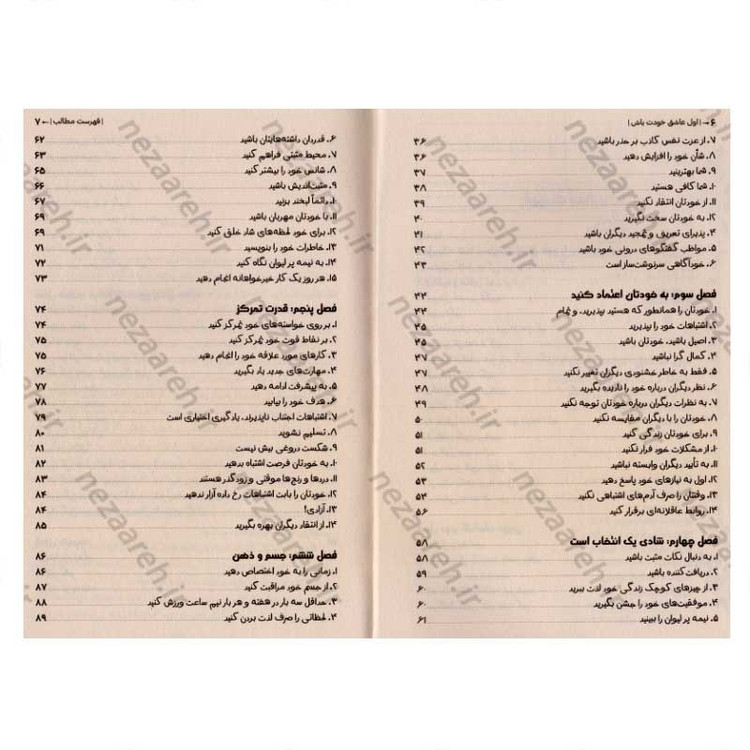 ۶ → | اول عاشق خودت باش |
۷. از عزت نفس کاذب بر حذر باشید ۳۶
۸. شأن خود را افزایش دهید ۳۶
۹. شما بهترینید ۳۷
۱۰. شما کافی هستید ۳۸
۱۱. از خودتان انتقاد نکنید ۳۹
۱۲. به خودتان سخت نگیرید ۴۰
۱۳. پذیرای تعریف و تمجید دیگران باشید ۴۱
۵. مواظب گفتگوهای درونی خود باشید ۴۲
۶. خودآگاهی سرنوشت‌ساز است ۴۳
فصل سوم: به خودتان اعتماد کنید ۴۴
۱. خودتان را همانطور که هستید بپذیرید، و تمام ۴۴
۲. اشتباهات خود را بپذیرید ۴۵
۳. اصیل باشید، خودتان باشید ۴۵
۴. کمال گرا نباشید ۴۷
۵. فقط به خاطر خشنودی دیگران تغییر نکنید ۴۷
۶. نظر دیگران درباره خود را نادیده بگیرید ۴۸
۷. به نظرات دیگران درباره خودتان توجه نکنید ۴۹
۸. خودتان را با دیگران مقایسه نکنید ۵۰
۹. برای خودتان زندگی کنید ۵۱
۱۰. از مشکلات خود فرار نکنید ۵۱
۱۱. به تأیید دیگران وابسته نباشید ۵۲
۱۲. اول به نیازهای خود پاسخ دهید ۵۳
۱۳. وقتتان را صرف آدم‌های اشتباهی نکنید ۵۴
۱۴. روابط عاقلانه‌ای برقرار کنید ۵۶
فصل چهارم: شادی یک انتخاب است ۵۸
۱. به دنبال نکات مثبت باشید ۵۸
۲. دریافت کننده باشید ۵۹
۳. از چیزهای کوچک زندگی خود لذت ببرید ۶۰
۴. موفقیت‌های خود را جشن بگیرید ۶۰
۵. نیمه پر لیوان را ببینید ۶۱
| فهرست مطالب | ← ۷
۶. قدردان داشته‌هایتان باشید ۶۲
۷. محیط مثبتی فراهم کنید ۶۳
۸. شانس خود را بیشتر کنید ۶۵
۹. مثبت‌اندیش باشید ۶۶
۱۰. دائماً لبخند بزنید ۶۷
۱۱. با خودتان مهربان باشید ۶۹
۱۲. برای خود لحظه‌های شاد خلق کنید ۶۹
۱۳. خاطرات خود را بنویسید ۷۱
۱۴. به نیمه پر لیوان نگاه کنید ۷۲
۱۵. هر روز یک کار خیرخواهانه انجام دهید ۷۳
فصل پنجم: قدرت تمرکز ۷۴
۱. بر روی خواسته‌های خود تمرکز کنید ۷۴
۲. بر نقاط قوت خود تمرکز کنید ۷۵
۳. کارهای مورد علاقه خود را انجام دهید ۷۵
۴. مهارت‌های جدید یاد بگیرید ۷۶
۵. به پیشرفت ادامه دهید ۷۷
۶. هدف خود را بیابید ۷۸
۷. اشتباهات اجتناب ناپذیرند، یادگیری اختیاری است ۷۹
۸. تسلیم نشوید ۸۰
۹. شکست دروغی بیش نیست ۸۱
۱۰. به خودتان فرصت اشتباه بدهید ۸۲
۱۱. دردها و رنج‌ها موقتی و زودگذر هستند ۸۳
۱۲. خودتان را بابت اشتباهات رخ داده آزار ندهید ۸۴
۱۳. آزادی! ۸۴
۱۴. از انتقاد دیگران بهره بگیرید ۸۵
فصل ششم: جسم و ذهن ۸۶
۱. زمانی را به خود اختصاص دهید ۸۶
۲. از جسم خود مراقبت کنید ۸۷
۳. حداقل سه بار در هفته و هر بار نیم ساعت ورزش کنید ۸۸
۴. لحظاتی را صرف لذت بردن کنید ۸۹
nezaareh.ir
nezaareh.ir
nezaareh.ir
nezaareh.ir
nezaareh.ir
nezaareh.ir